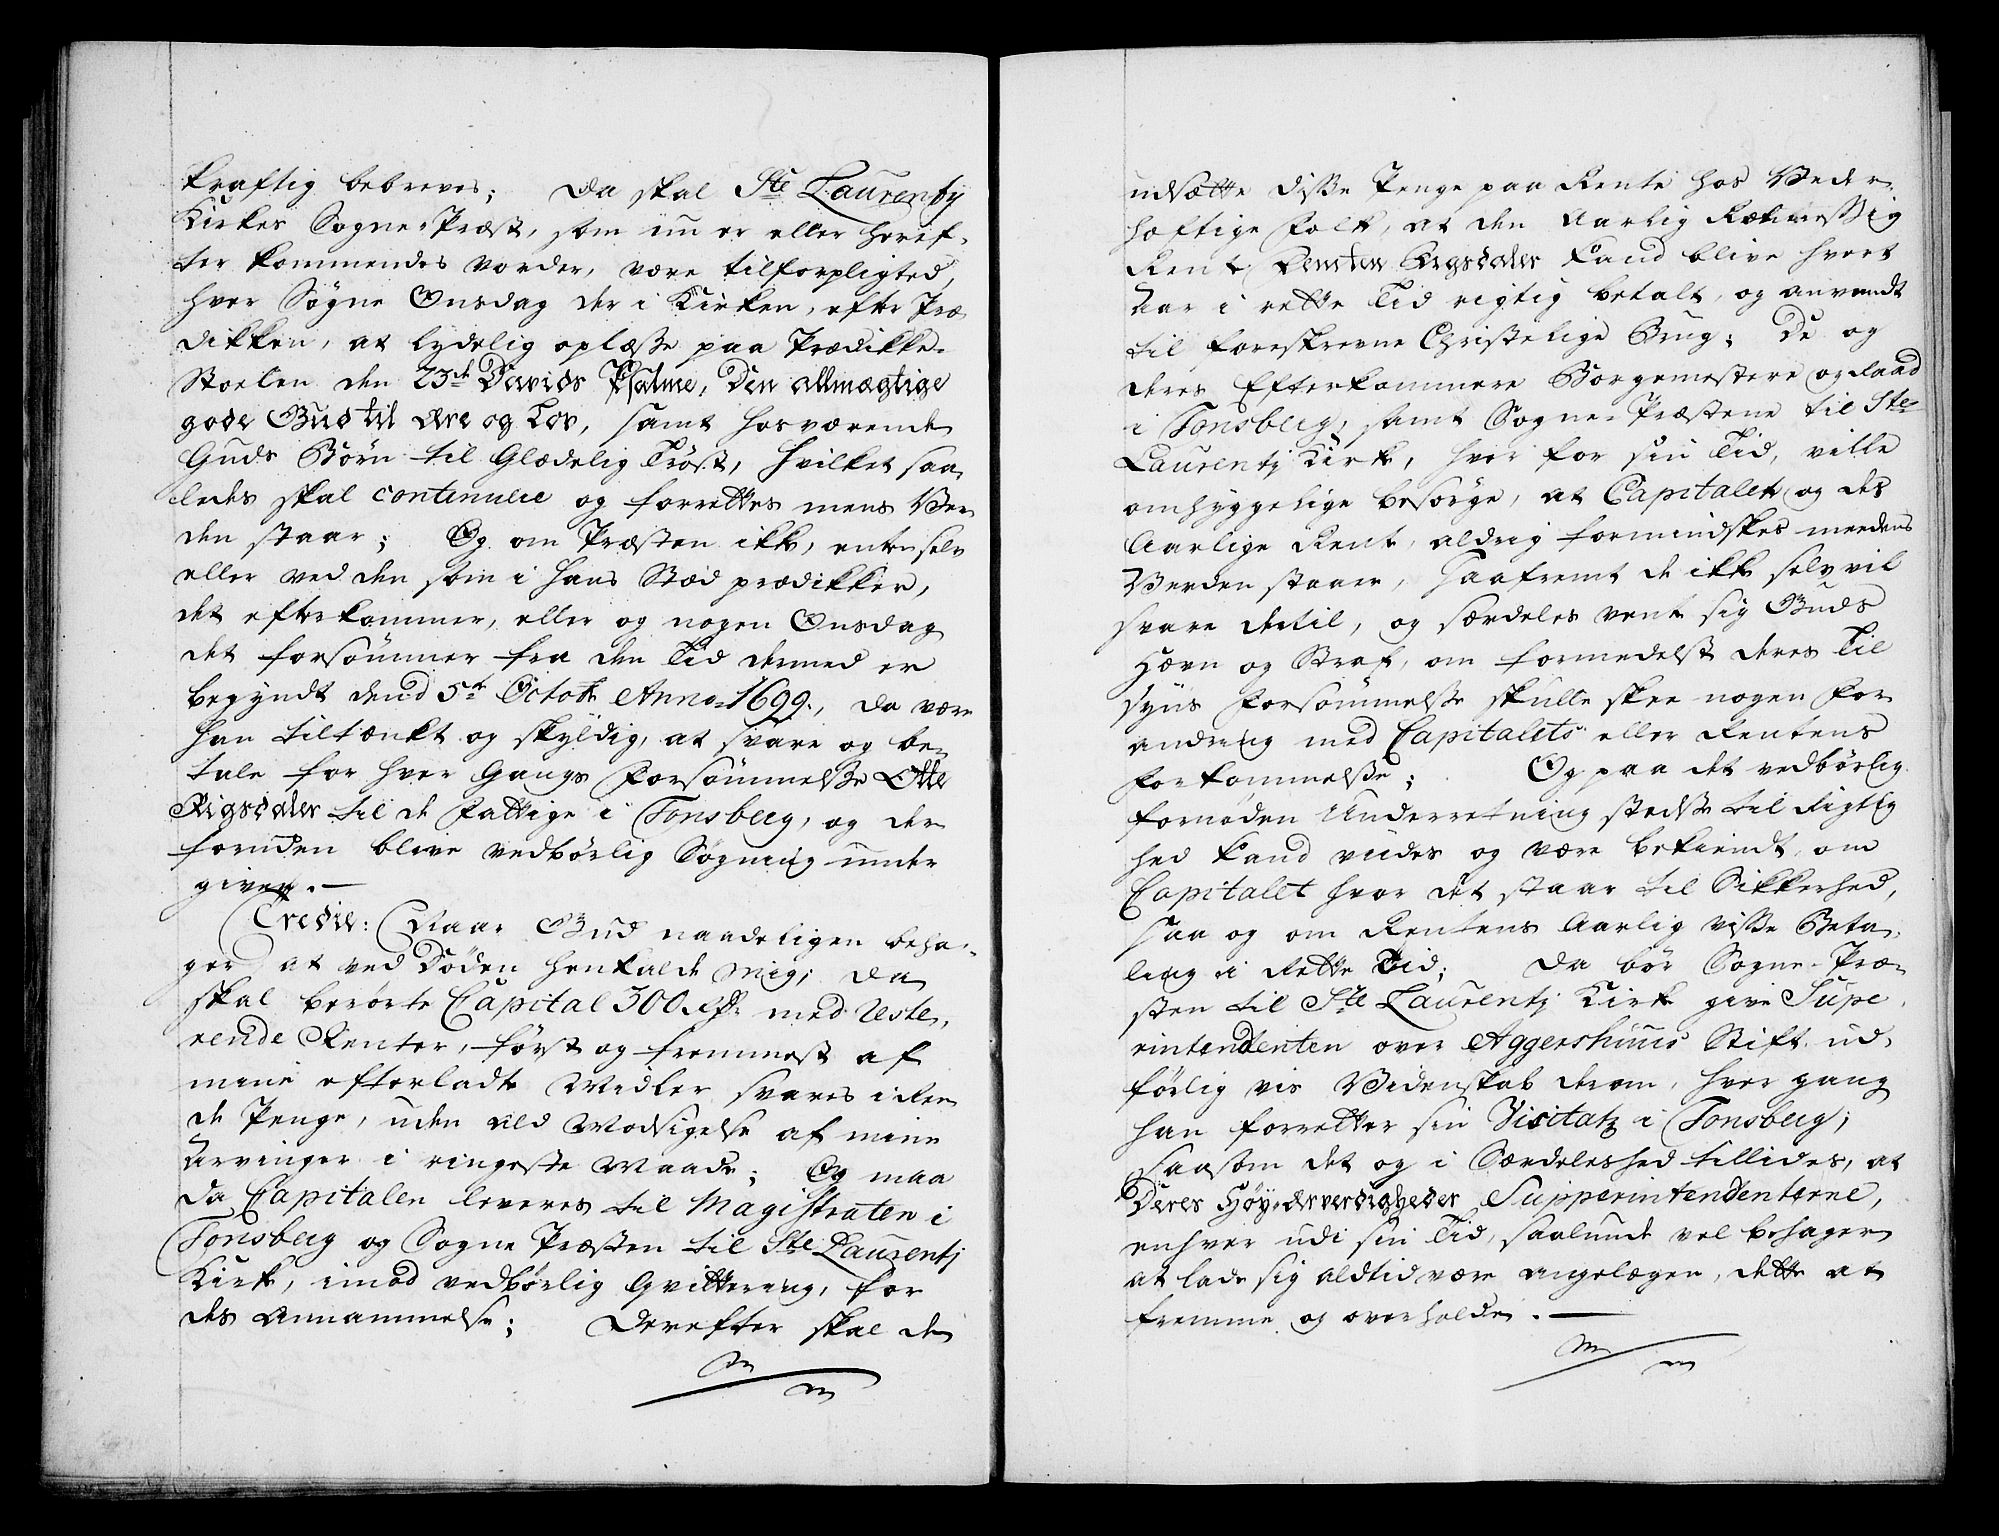 kraftig bebreves; Da skal Ste Laurentij
Kirkes Sogne-Præst, som nu er eller heref-
ter kommendes vorder, være tilforpligted,
hver Søgne Onsdag der i Kirken, efter Præ-
dikken, at lydelig oplæsse paa Prædikke-
Stoelen den 23de Davids Psalme, Den allmægtige
gode Gud til ære og Lov, samt hosværende
Guds Børn til Glædelig Trøst, hvilket saa-
ledes skal continuere og forrettes mens Ver-
den staar; Og om Præsten ikke, enten selv
eller ved den som i hans Stæd prædikker,
det efterkommer, eller og nogen Onsdag
det forsømmer fra den Tid dermed er
begyndt dend 5te Octobr Anno 1699., da være
han tiltænkt og skyldig, at svare og be-
tale for hver Gangs Forsømmelsse Otte
Rigsdaler til de Fattige i Tønsberg, og der-
foruden blive vedbørlig Søgning under-
given. —
Tredie: Naar Gud naadeligen beha-
ger at ved Døden henkalde mig; da
skal berørte Capital 300 Rdr med Reste-
rende Renter, først og fremmest af
mine efterladte Midler svares i Ree-
de Penge, uden ald Modsigelse af mine
Arvinger i ringeste Maade; Og maa
da Capitalen leveres til Magistraten i
Tønsberg og Sogne Præsten til Ste Laurentj
Kirke, imod vedbørlig Qvittering, for
des Annammelse; Derefter skal de
udsætte disse Penge paa Rente hos Veder-
hæftige Folk, at den Aarlig
Rente, Femten Rigsdaler kand blive hvert
Aar i rette Tid rigtig betalt, og anvendt
til foreskrevne Christelige Brug; De og
deres Efterkommere Borgemestere og Raad
i Tønsberg, samt Sogne-Præstene til Ste
Laurentj Kirke, hver for sin Tid, ville
omhyggelige besørge, at Capitalet og des
Aarlige Rente, aldrig formindskes meedens
Verden staaer, saafremt de ikke selv vil
svare dertil, og særdeles vente sig Guds
Hævn og Straf, om formedelst deres Til-
syns Forsømmelsse skulle skee nogen For-
andring med Capitalets eller Rentens
Forkommelsse; Og paa det vedbørlig
fornøden Underretning stedse til Rigtig-
hed kand viides og være bekiendt, om
Capitalet hvor det staar til Sikkerhed,
saa og om Rentens Aarlig visse Beta-
ling i rette Tid; Da bør Sogne-Præ-
sten til Ste Laurentj Kirke give Supe-
rintendenten over Aggershuus Stift ud-
førlig vis Videnskab derom, hver gang
han forretter sin Visitatz i Tønsberg;
saasom det og i Særdeleshed tillides, at
Deres Høy-Ærværdigheder Supperintendenterne,
enhver udi sin Tid, saalunde vel behager
at lade sig aldtid være angelægen, dette at
fremme og overholde. —